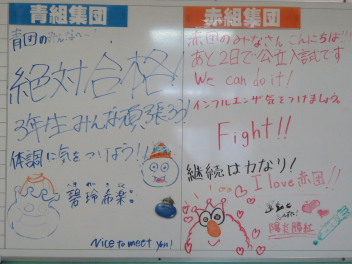 青組集団
青団のみんなへ〜!
絶対合格!
3年生みんな頑張ろう!
体調に気をつけよう!!
碧玲希楽。
Nice to meet you!
赤組集団
赤団のみなさんこんにちは!!!
あと2日で公立入試です
We can do it!
インフルエンザ気をつけましょう
Fight!!
継続は力なり!
I love 赤団!!